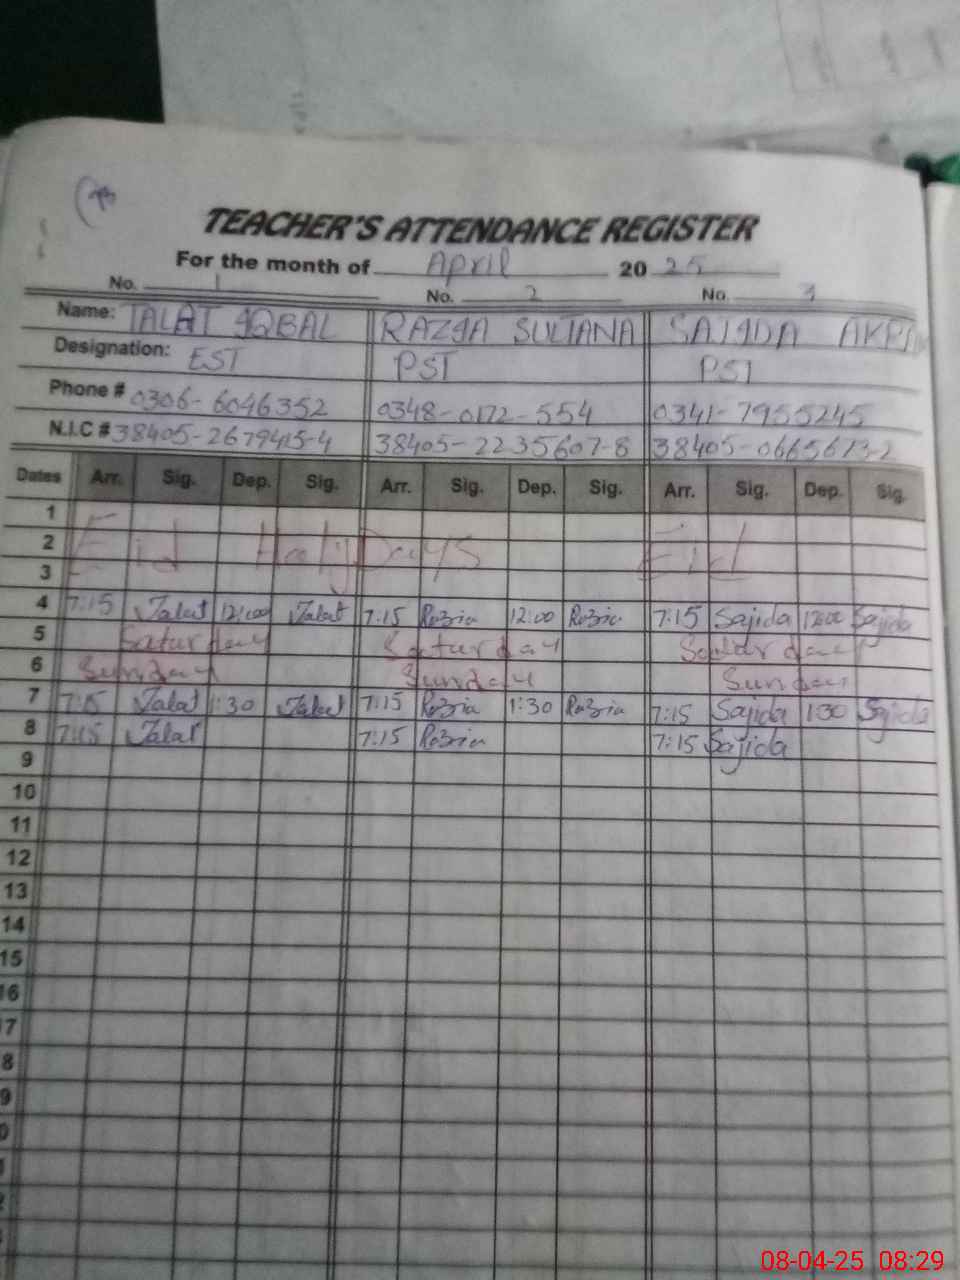 TEACHER'S ATTENDANCE REGISTER
For the month of April 20 25
No. 1 No. 2 No. 3
Name: TALAT IQBAL RAZIA SULTANA SAJIDA
Designation: EST PST PST
Phone # 0306-6046352 0348-0172-554 0341-7955245
N.I.C # 38405-2679415-4 38405-2235607-8 38405-0665673-2
Dates Arr. Sig. Dep. Sig. Arr. Sig. Dep. Sig. Arr. Sig. Dep. Sig.
1
2 Eid HolyDays Eid
3
4 7:15 Talat 12:00 Talat 7:15 Razia 12:00 Razia 7:15 Sajida 12:00 Sajida
5 Saturday Saturday Saturday
6 Sunday Sunday Sunday
7 7:15 Talat 1:30 Talat 7:15 Razia 1:30 Razia 7:15 Sajida 1:30 Sajida
8 7:15 Talat 7:15 Razia 7:15 Sajida
9
10
11
12
13
14
15
16
7
8
9
08-04-25 08:29